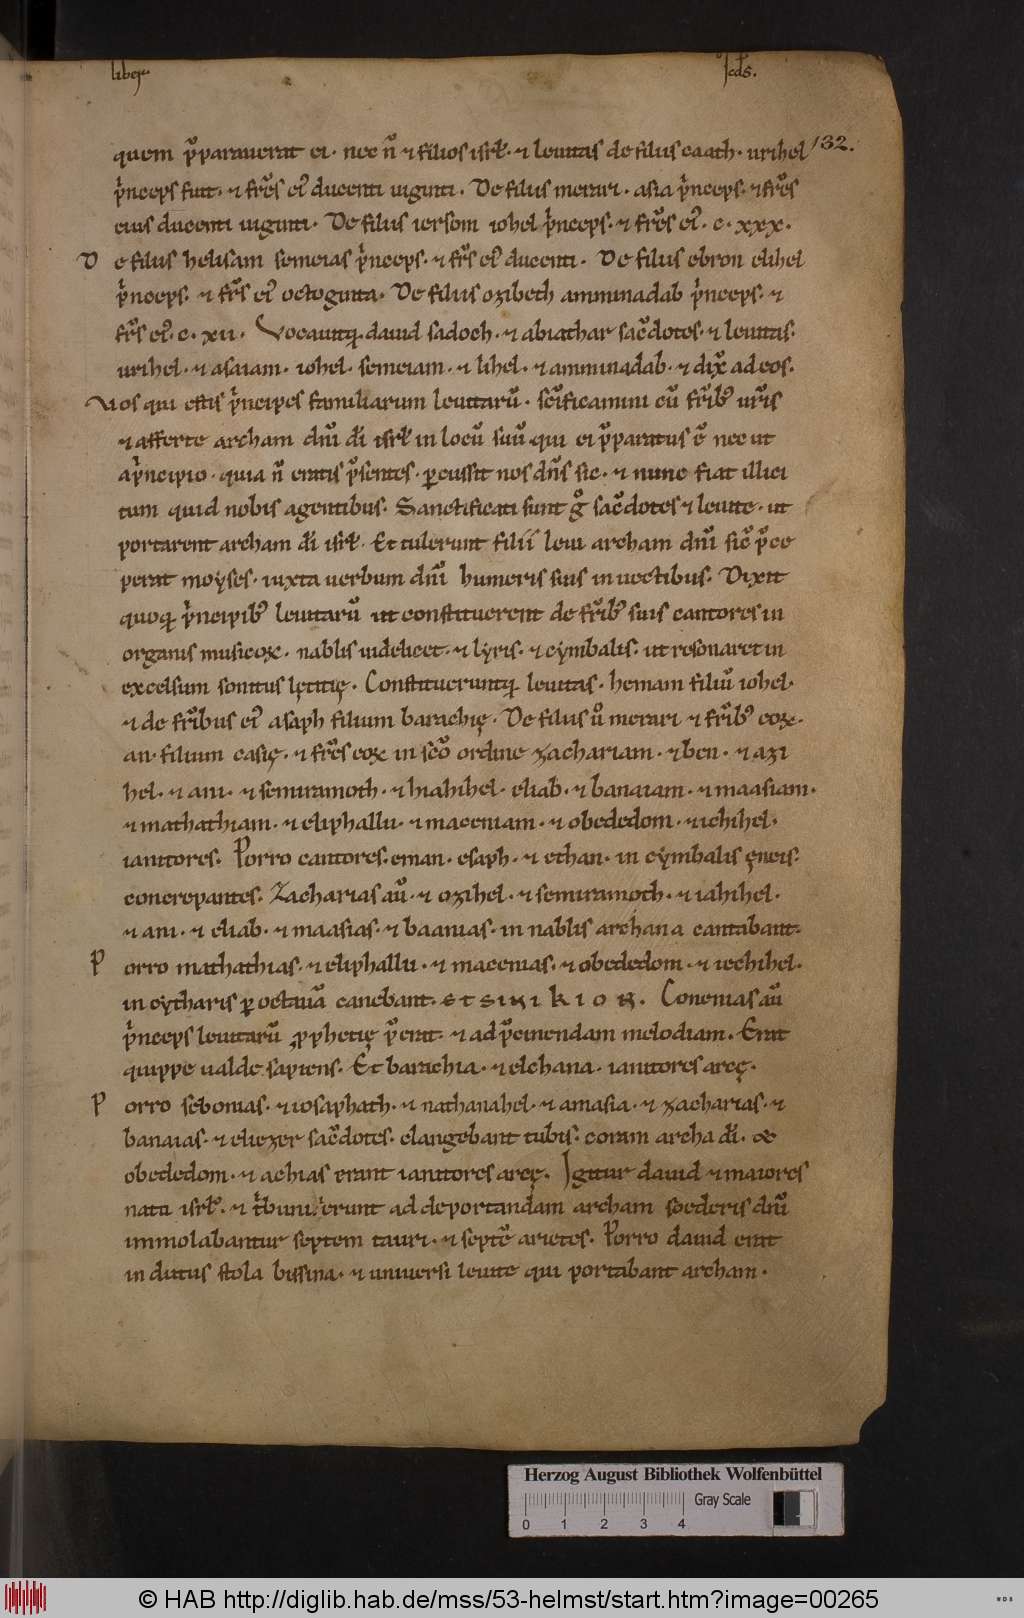 liber
scd̄s.
132.
quem p̄parauerat ei. nec n̄ & filios isrl̄. & leuitas de filiis caath. urihel
p̍nceps fuit. & fr̄s ei᷒ ducenti uiginti. De filiis merari. asia p̍nceps. & fr̄s
eius ducenti uiginti. De filiis iersom iohel p̍nceps. & fr̄s ei᷒. c. xxx.
D e filiis helisam semeias p̍nceps. & fr̄s ei᷒ ducenti. De filiis ebron elihel
p̍nceps. & fr̄s ei᷒ octoginta. De filiis ozihech amminadab p̍nceps. &
fr̄s ei᷒. c. xii. Vocauitq; dauid sadoch. & abiathar sac̄dotes. & leuitas.
urihel. & asaiam. iohel. semeiam. & lihel. & amminadab. & dix̄ ad eos.
Vos qui estis p̍ncipes familiarum leuitarū. sc̄ificamini cū fr̄ib᷒ ur̄is
& afferte archam dn̄i dī isrl̄ in locū suū qui ei p̄paratus ē nec ut
a p̍ncipio. quia n̄ eratis p̄sentes. ꝑcussit nos dn̄s sic. & nunc fiat illici
tum quid nobis agentibus. Sanctificati sunt gͦ sac̄dotes & leuite. ut
portarent archam dī isrl̄. Et tulerunt filii leui archam dn̄i sic̄ p̄ce
perat moyses. iuxta uerbum dn̄i humeris suis in uectibus. Dixit
quoq; p̍ncipib᷒ leuitarū ut constituerent de fr̄ib᷒ suis cantores in
organis musicoꝝ. nablis uidelicet. & lyris. & cymbalis. ut resonaret in
excelsum sonitus lętitię. Constitueruntq; leuitas. hemam filiū iohel.
& de fr̄ibus ei᷒ asaph filium barachię. De filiis ū merari & fr̄ib᷒ eoꝝ.
an. filium casię. & fr̄s eoꝝ in sc̄o ordine zachariam. & ben. & azi
hel. & ani. & semiramoth. & hiahihel. eliab. & banaiam. & maasiam.
& mathathiam. & eliphallu. & maceniam. & obededom. & iehihel.
ianitores. Porro cantores. eman. esaph. & ethan. in cymbalis ęneis.
concrepantes. Zacharias aū. & ozihel. & semiramoth. & iahihel.
& ani. & eliab. & maasias. & baanias. in nablis archana cantabant.
P orro mathathias. & eliphallu. & macenias. & obededom. & iechihel.
in cytharis ꝑ octauā canebant. Conenias aū
p̍nceps leuitarū ꝓphetię p̄erat. & ad p̄cinendam melodiam. Erat
quippe ualde sapiens. Et barachia. & elchana. ianitores arcę.
P orro sebonias. & iosaphath. & nathanahel. & amasia. & zacharias. &
banaias. & eliezer sac̄dotes. clangebant tubis. coram archa dī. &
obededom. & achias erant ianitores arcę. Igitur dauid & maiores
natu isrl̄. & t̍buni ierunt ad deportandam archam foederis dn̄i
immolabantur septem tauri. & septē arietes. Porro dauid erat
indutus stola bissina. & uniuersi leuite qui portabant archam.
Herzog August Bibliothek Wolfenbüttel
Gray Scale
0 1 2 3 4
© HAB http://diglib.hab.de/mss/53-helmst/start.htm?image=00265